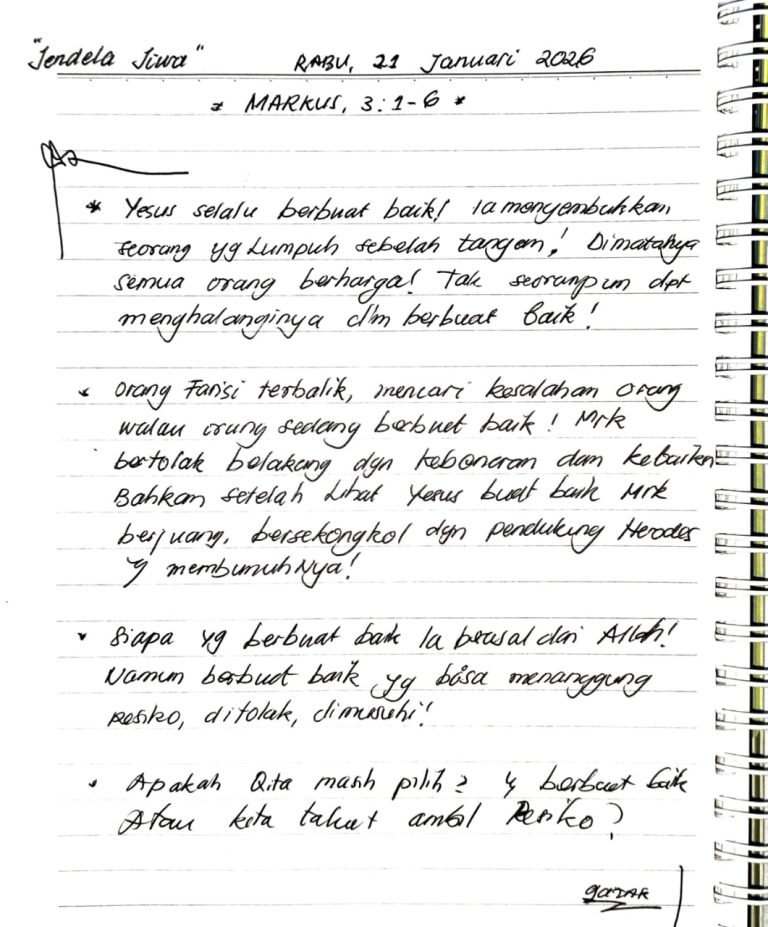 "Jendela Jiwa" RABU, 21 Januari 2026
* MARKUS, 3:1-6 *
* Yesus selalu berbuat baik! Ia menyembuhkan
seorang yg Lumpuh sebelah tangan! Dimatanya
semua orang berharga! Tak seorangpun dpt
menghalanginya dlm berbuat baik!
* Orang Farisi terbalik, mencari kesalahan orang
walau orang sedang berbuat baik! Mrk
bertolak belakang dgn kebenaran dan kebaikan
Bahkan setelah Lihat Yesus buat baik Mrk
berjuang, bersekongkol dgn pendukung Herodes
membunuhNya!
* Siapa yg berbuat baik Ia berasal dari Allah!
Namun berbuat baik yg bisa menanggung
Resiko, ditolak, dimusuhi!
* Apakah Qita masih pilih2 berbuat baik
Atau kita takut ambil Resiko?